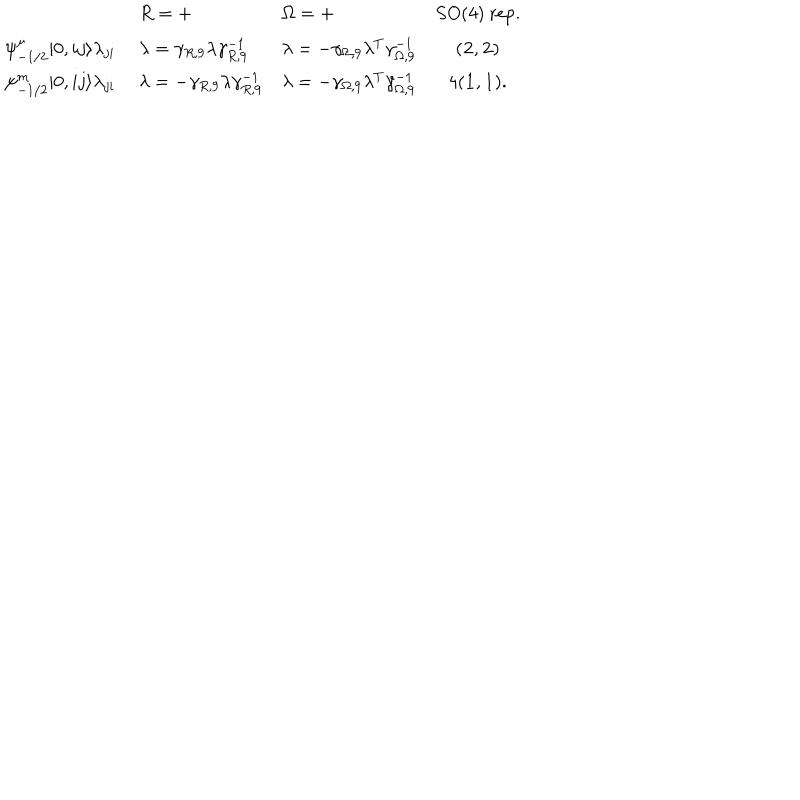 R = + Ω = + SO(4) rep.
ψ^μ_{-1/2}|0, ij⟩λ_{ji} λ = γ_{R,9}λγ^{-1}_{R,9} λ = −γ_{Ω,9}λ^Tγ^{-1}_{Ω,9} (2, 2)
ψ^m_{-1/2}|0, ij⟩λ_{ji} λ = −γ_{R,9}λγ^{-1}_{R,9} λ = −γ_{Ω,9}λ^Tγ^{-1}_{Ω,9} 4(1, 1).